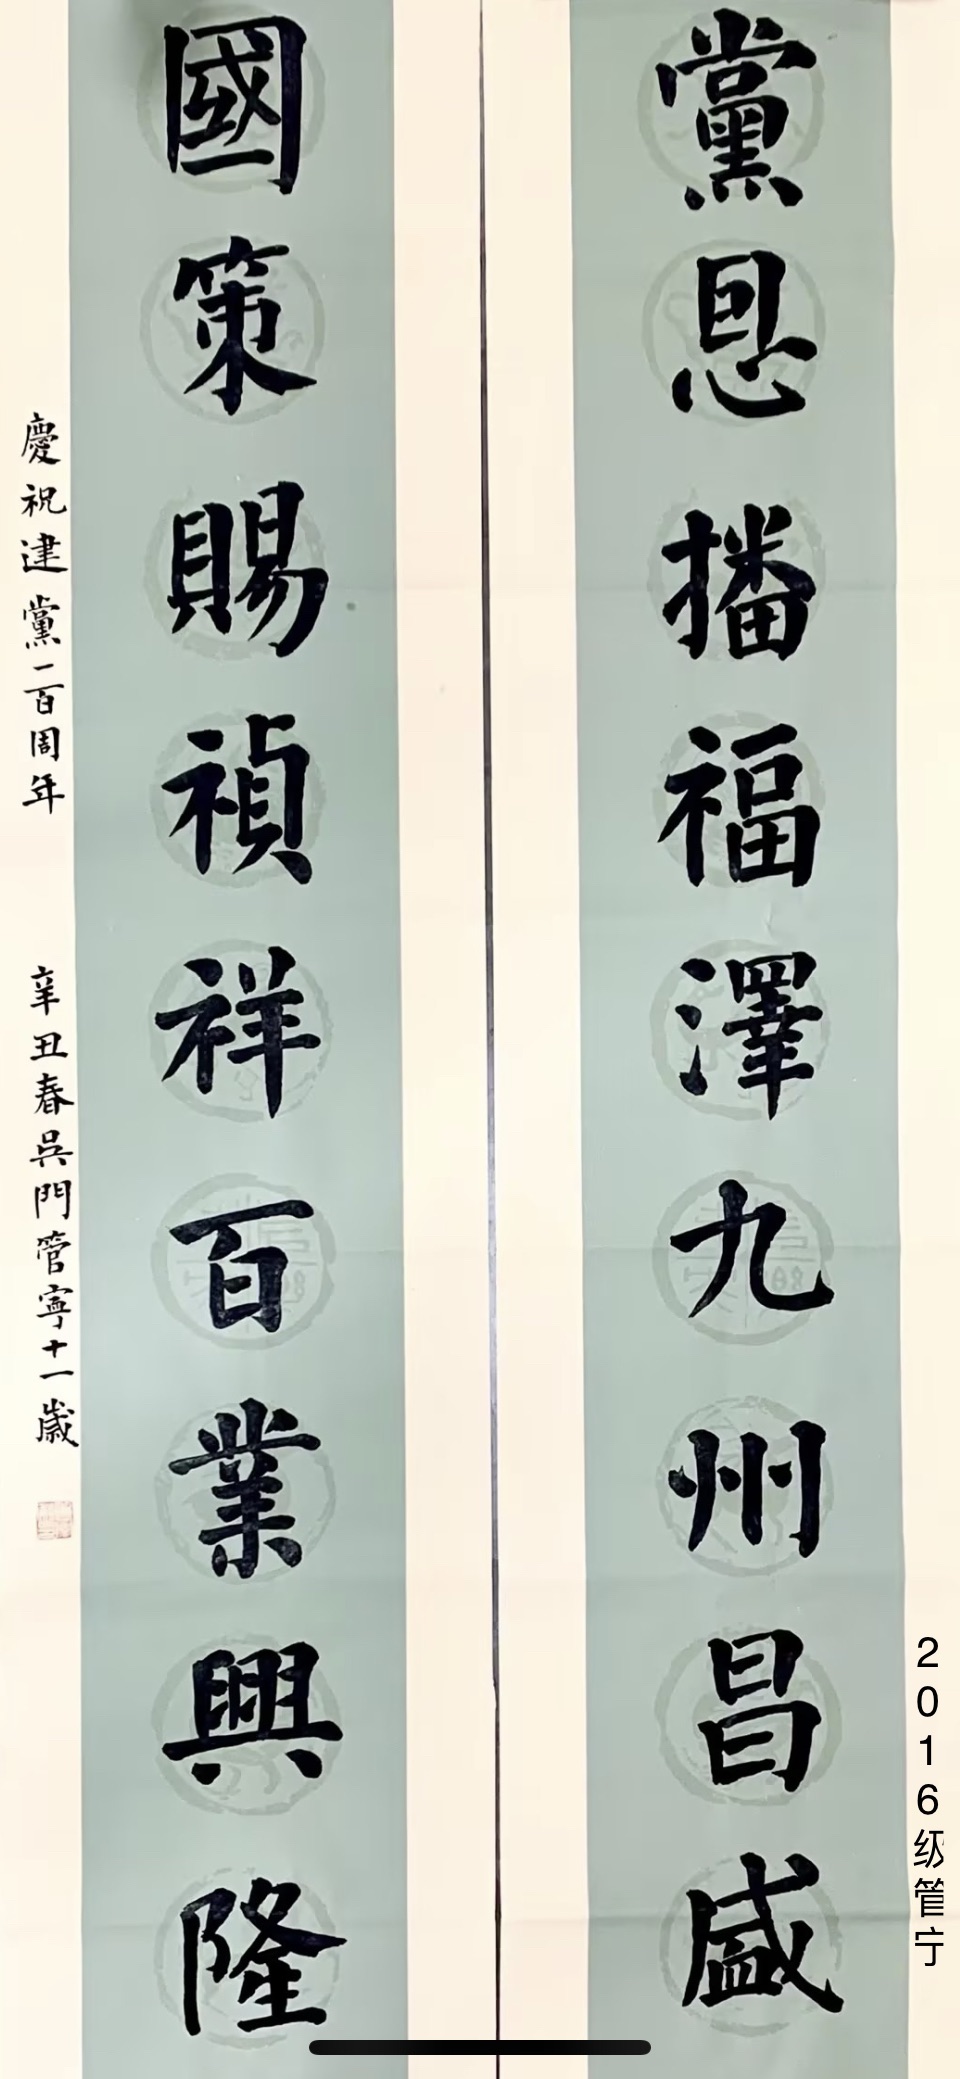 黨恩播福澤九州昌盛
國策賜禎祥百業興隆
慶祝建黨一百周年
辛丑春吳門管寧十一歲
2016级管宁